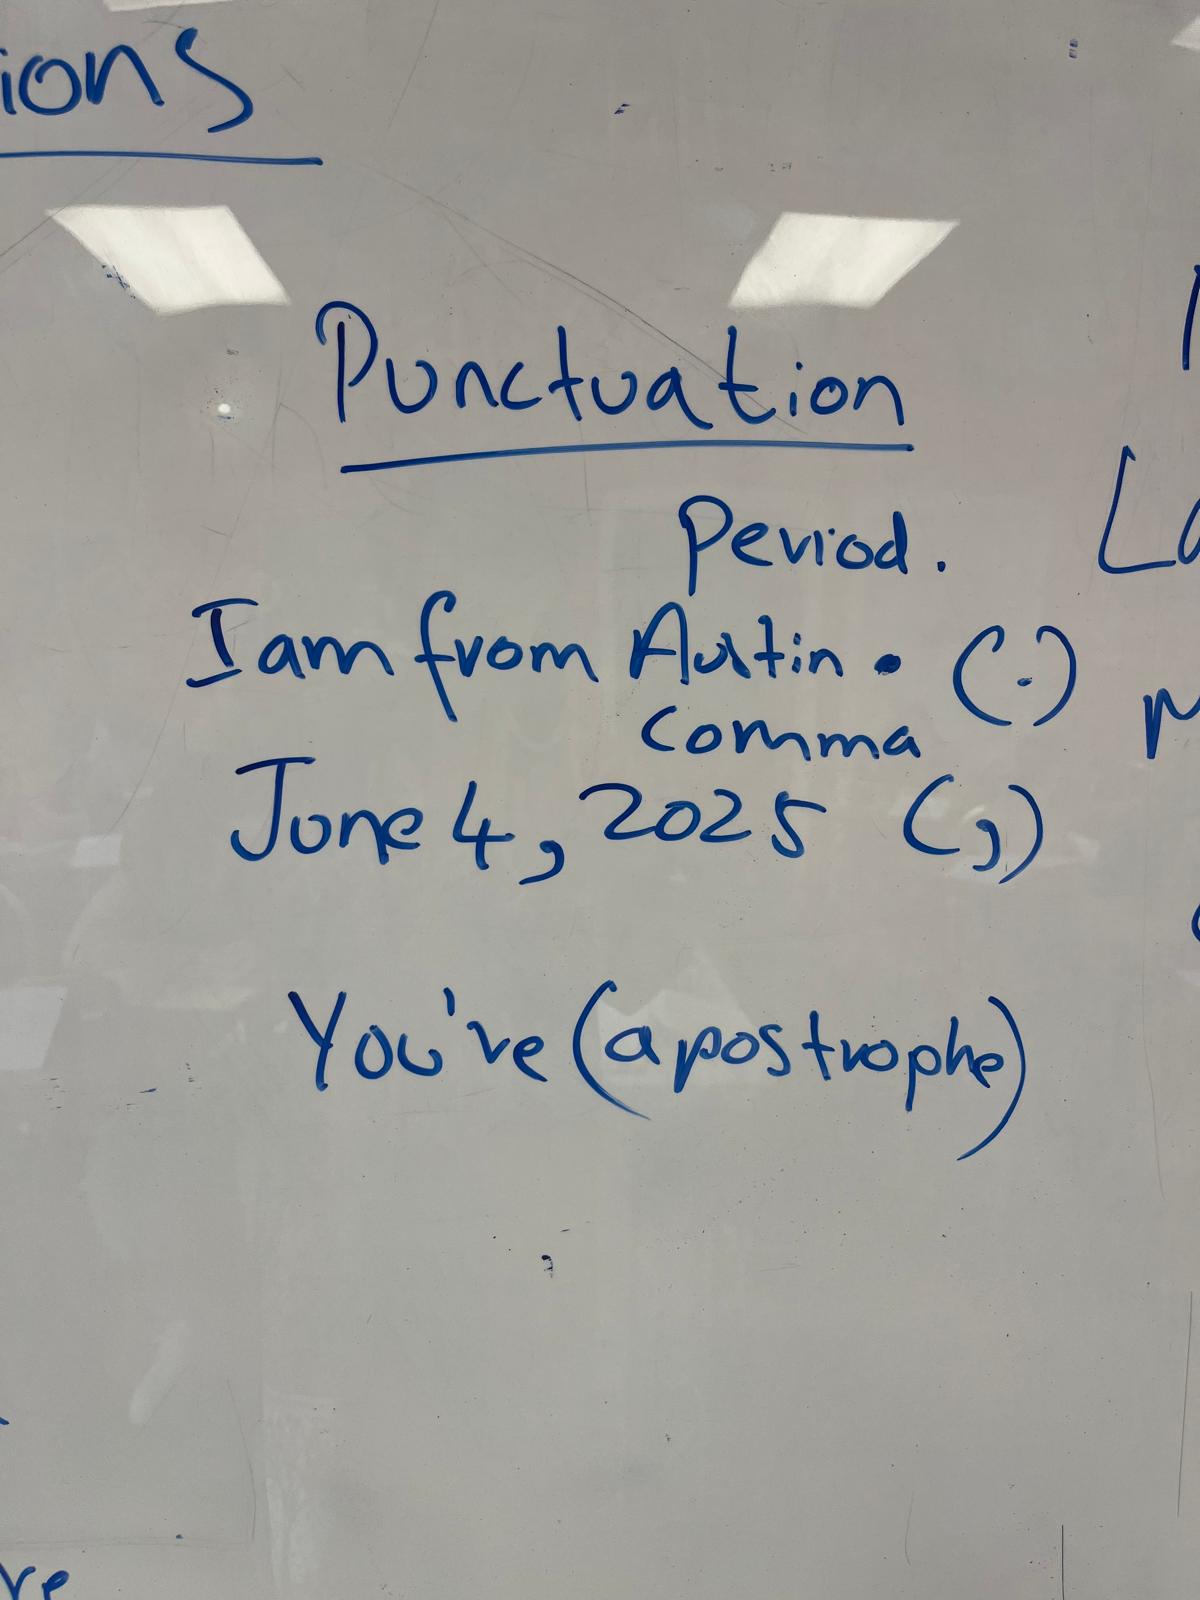 ions
Punctuation
period.
I am from Austin. (.)
comma
June 4, 2025 (,)
You've (apostrophe)
La
re